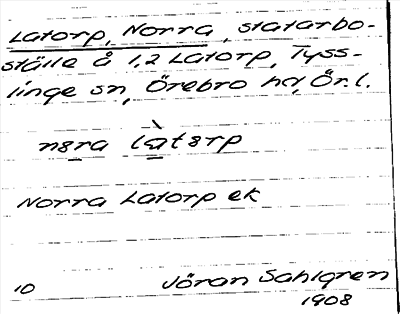 Latorp, Norra, statarbo-
ställe å 1,2 Latorp, Tyss-
linge sn, Örebro hd, Ör. l.
Norra Latorp ek
10 Jöran Sahlgren
1908